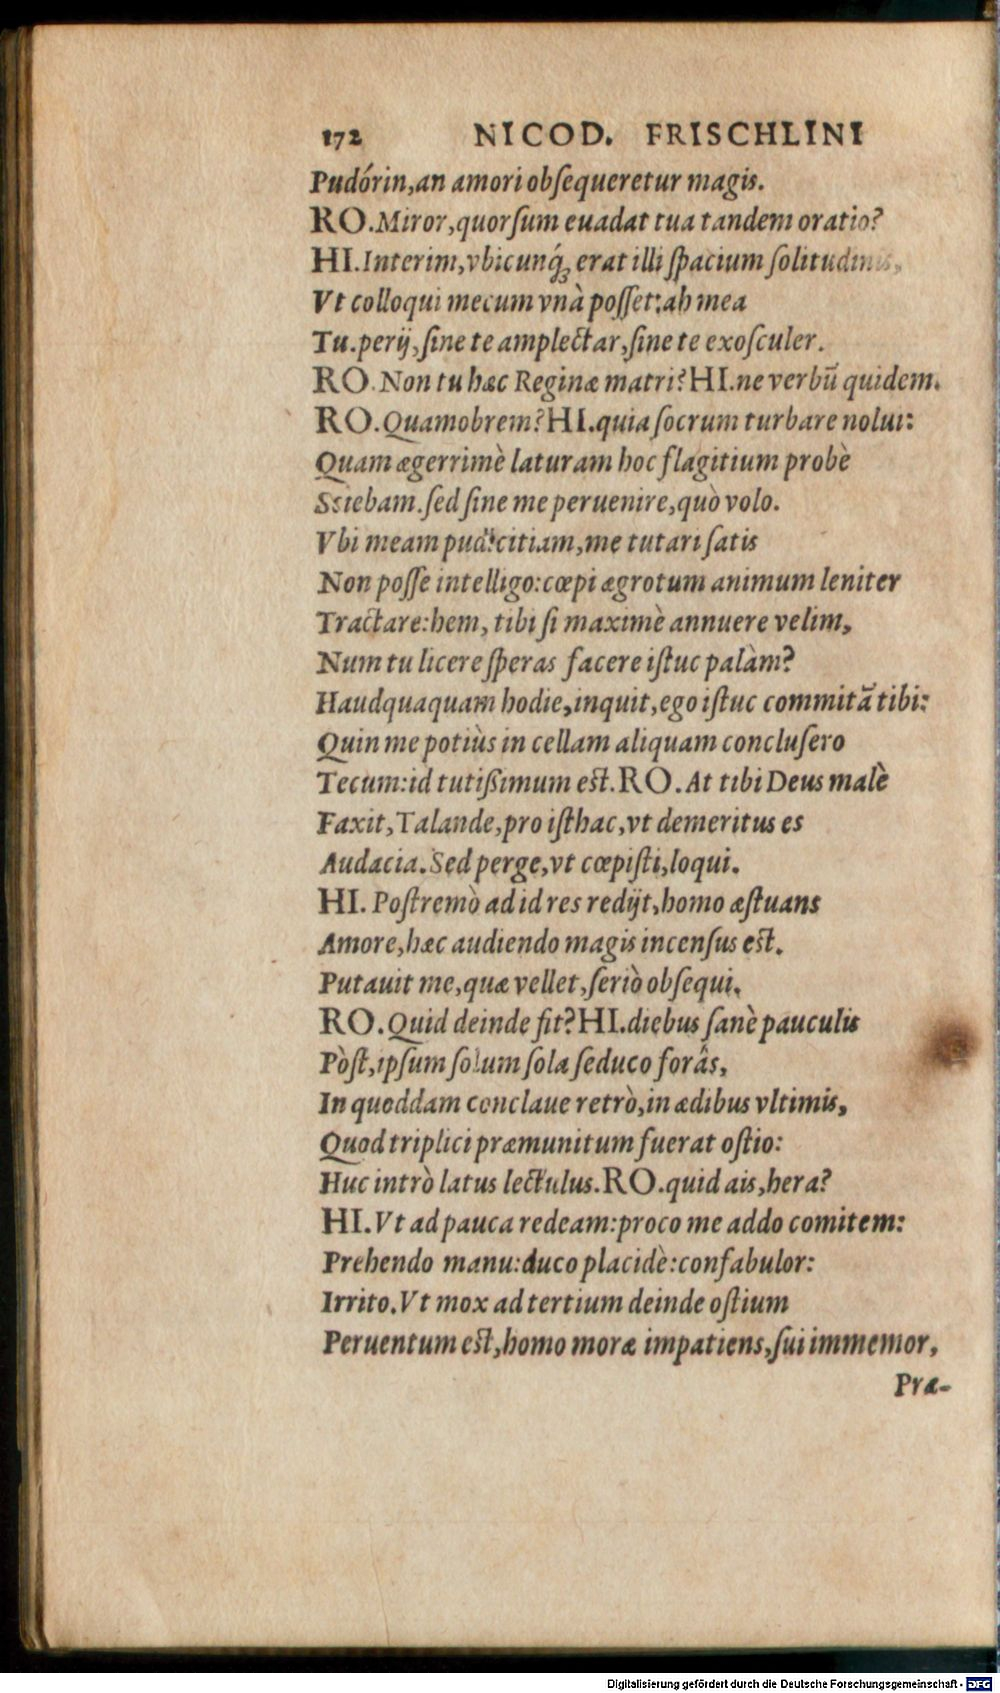 172 NICOD. FRISCHLINI
Pudórin,an amori obsequeretur magis.
RO.Miror,quorsum euadat tua tandem oratio?
HI.Interim,vbicunq́ꝫ erat illi spacium solitudinis,
Vt colloqui mecum vnà posset:ah mea
Tu.perij,sine te amplectar,sine te exosculer.
RO.Non tu hæc Reginæ matri?HI.ne verbũ quidem.
RO.Quamobrem?HI.quia socrum turbare nolui:
Quam ægerrimè laturam hoc flagitium probè
Sciebam.sed sine me peruenire,quò volo.
Vbi meam pudicitiam,me tutari satis
Non posse intelligo:cœpi ægrotum animum leniter
Tractare:hem, tibi si maximè annuere velim,
Num tu licere speras facere istuc palàm?
Haudquaquam hodie,inquit,ego istuc commitã tibi:
Quin me potiùs in cellam aliquam conclusero
Tecum:id tutißimum est.RO.At tibi Deus malè
Faxit,Talande,pro isthac,vt demeritus es
Audacia.Sed perge,vt cœpisti,loqui.
HI. Postremò ad id res redijt,homo æstuans
Amore,hæc audiendo magis incensus est.
Putauit me,quæ vellet,seriò obsequi.
RO.Quid deinde fit?HI.diebus sanè pauculis
Pòst,ipsum solum sola seduco forâs,
In quoddam conclaue retrò,in ædibus vltimis,
Quod triplici præmunitum fuerat ostio:
Huc intrò latus lectulus.RO.quid ais,hera?
HI.Vt ad pauca redeam:proco me addo comitem:
Prehendo manu:duco placidè:confabulor:
Irrito.Vt mox ad tertium deinde ostium
Peruentum est,homo moræ impatiens,sui immemor,
Præ-
Digitalisierung gefördert durch die Deutsche Forschungsgemeinschaft - DFG